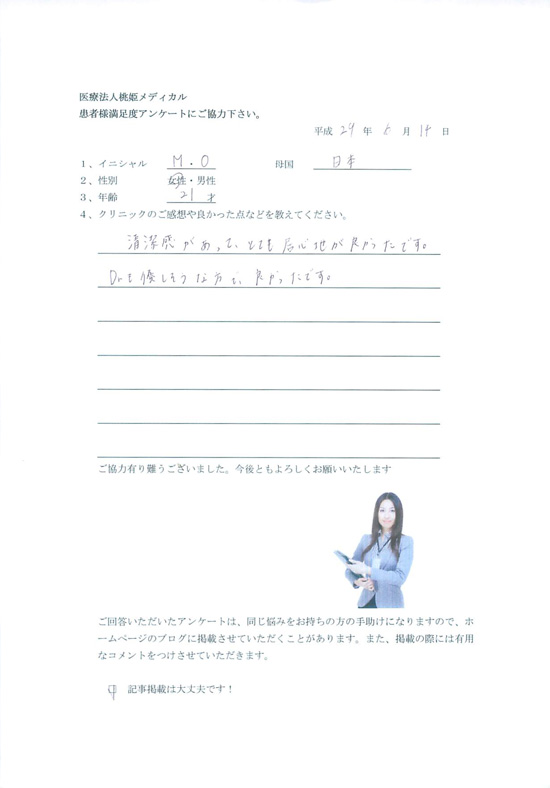 医療法人桃姫メディカル
患者様満足度アンケートにご協力下さい。
平成 29 年 5 月 14 日
1、イニシャル M・O 母国 日本
2、性別 女性・男性
3、年齢 21 才
4、クリニックのご感想や良かった点などを教えてください。
清潔感があって、とても居心地が良かったです。
Drも優しそうな方で、良かったです。
ご協力有り難うございました。今後ともよろしくお願いいたします
ご回答いただいたアンケートは、同じ悩みをお持ちの方の手助けになりますので、ホ
ームページのブログに掲載させていただくことがあります。また、掲載の際には有用
なコメントをつけさせていただきます。
記事掲載は大丈夫です！